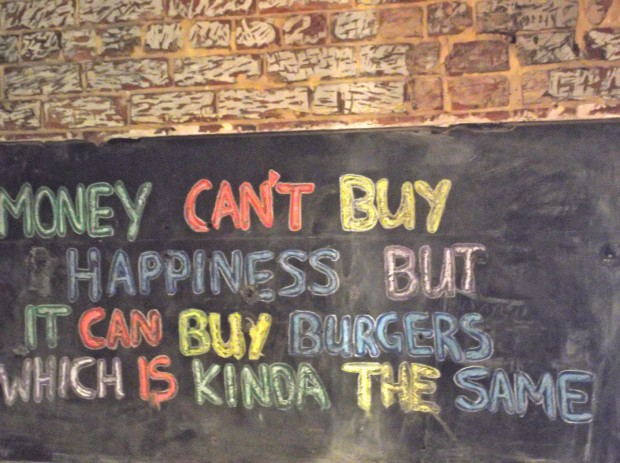 MONEY CAN'T BUY
HAPPINESS BUT
IT CAN BUY BURGERS
WHICH IS KINDA THE SAME